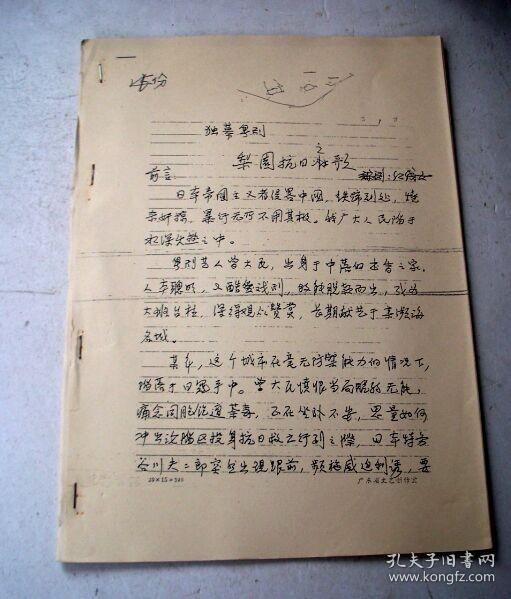 独幕粤剧
梨园抗日之歌
前言:
日本帝国主义者侵略中国,铁蹄到处,烧
杀奸掳,暴行无所不用其极。我广大人民陷于
水深火热之中。
粤剧艺人曾大民,出身于中落的书香之家。
人本聪明,又酷爱戏剧,故能脱颖而出,成为
大班台柱,深得观众赞赏,长期献艺于某濒海
名城。
某年,这个城市在毫无防御能力的情况下,
沦于日寇手中。曾大民愤恨当局脆弱无能,
痛念同胞饱遭荼毒,正在坐卧不安,思量如何
冲出沦陷区投身抗日救亡行列之际,日本特务
谷川夫二郎突然出现跟前,频施威迫利诱,要
20×15=300
广东省文艺创作室
孔夫子旧书网
www.kongfz.com